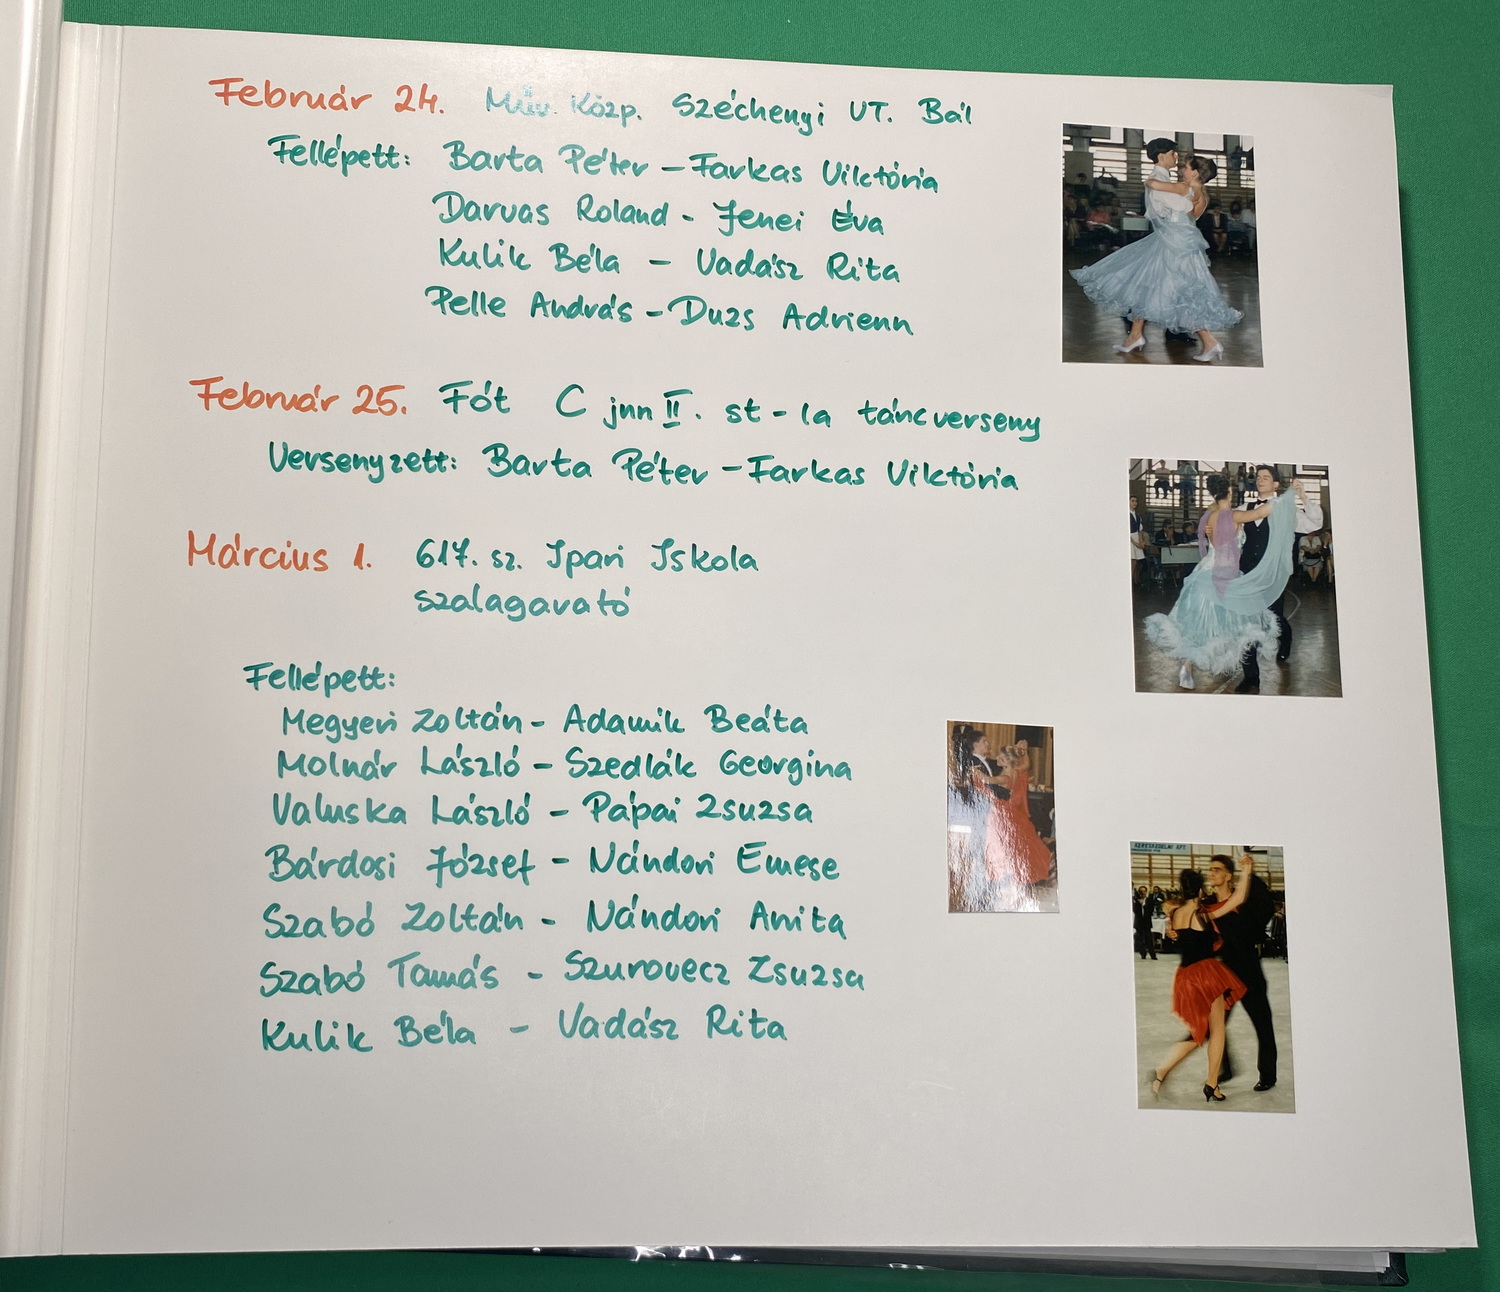 Február 24. Műv. Közp. Széchenyi UT. Bál
Fellépett: Barta Péter – Farkas Viktória
Darvas Roland - Jenei Éva
Kulik Béla – Vadász Rita
Pelle András – Duzs Adrienn
Február 25. Fót C jun II. st - la táncverseny
Versenyzett: Barta Péter – Farkas Viktória
Március 1. 617. sz. Ipari Iskola
szalagavató
Fellépett:
Megyeri Zoltán - Adamik Beáta
Molnár László – Szedlák Georgina
Valuska László – Pápai Zsuzsa
Bárdosi József – Nándori Emese
Szabó Zoltán - Nándori Anita
Szabó Tamás - Szurovecz Zsuzsa
Kulik Béla - Vadász Rita
KERESKEDELMI KFT.